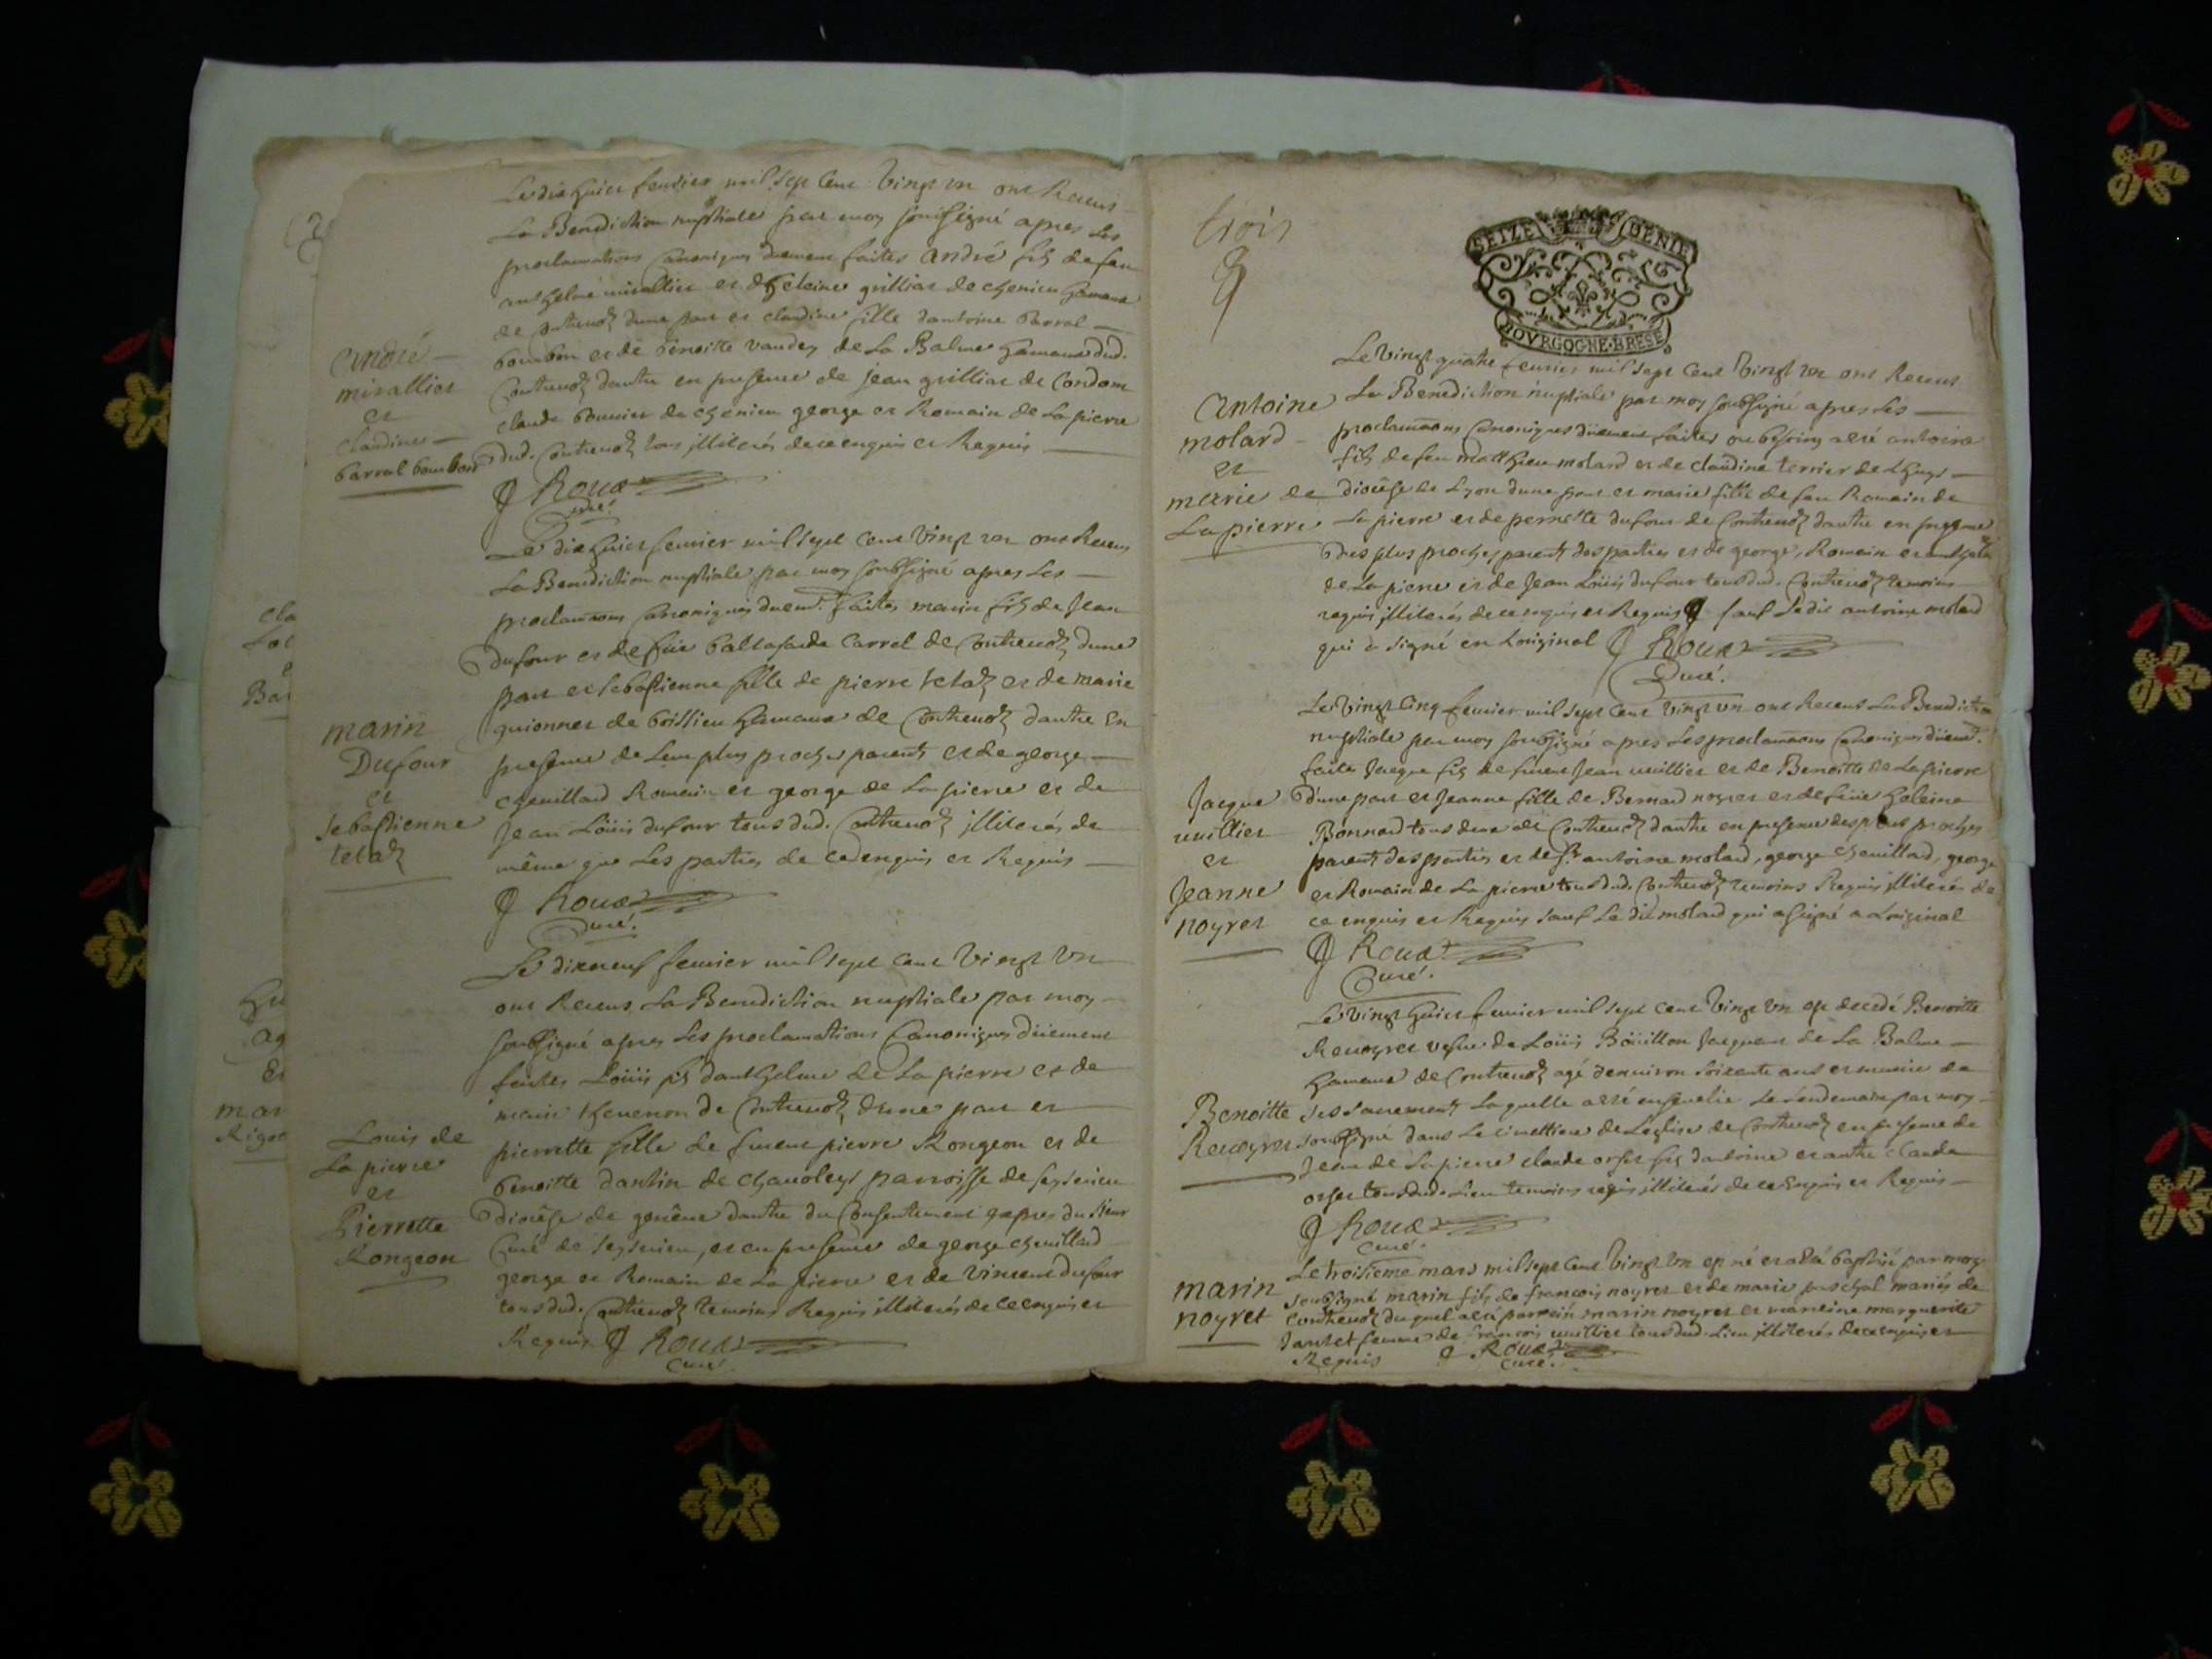 Le dix huict feuvrier mil sept cent vingt un ont Receus
La Benediction nuptiale par moy soussigné apres Les
proclamations Canoniques duement faites andré fils de feu
anthelme mirallier et d'heleine grilliat de chenieu hameau
de Contrevoz d'une part et claudine fille d'antoine barral
bourbon et de benoitte vaudey de La Balme hameau dud.
Contrevoz d'autre en presence de Jean grilliat de Condom
claude bonnier de chenieu george et Romain de La pierre
dud. Contrevoz tous illiterés de ce enquis et Requis
J Roux
Curé.
andré
mirallier
et
claudine
barral bourbon
Le dix huict feuvrier mil sept cent vingt un ont Receus
La Benediction nuptiale par moy soubsigné apres Les
proclamaons Canoniques duem.t faites marin fils de Jean
Dufour et de füe baltasarde Carrel de Contrevoz d'une
part et sebastienne fille de pierre tetaz et de marie
guionnet de boissieu hameau de Contrevoz d'autre En
presence de Leurs plus proches parents et de george
chevillard Romain et george de La pierre et de
Jean Loüis dufour tous dud. Contrevoz illiterés de
même que Les parties de ce enquis et Requis
J Roux
Curé.
marin
Dufour
et
sebastienne
tetaz
Le dixneuf feuvrier mil sept cent vingt un
ont Receus La Benediction nuptiale par moy
soubsigné apres Les proclamations Canoniques düement
faites Loüis fils d'anthelme de La pierre et de
marie thevenon de Contrevoz d'une part et
pierrette fille de pierre Rongeon et de
benoitte dantin de chavoley parroisse de seyssieu
diocêse de genêve d'autre du Consentement du sieur
Curé de seyssieu, et en presence de george chevillard
george et Romain de La pierre et de vincent dufour
tous dud. Contrevoz temoins Requis illiterés de ce enquis et
Requis J Roux
Curé.
Louis de
La pierre
et
Pierrette
Rongeon
trois
3
SEIZE DENIE
BOVRGOGNE·BRESE
Le vingt quatre feuvrier mil sept cent vingt un ont Receus
La Benediction nuptiale par moy soubsigné apres Les
proclamaons Canoniques düement faites ou besoing a esté antoine
fils de feu matthieu molard et de claudine terrier de Lhuys
diocêse de Lyon d'une part et marie fille de feu Romain de
La pierre et de pernette dufour de Contrevoz d'autre en presence
des plus proches parents des parties et de george, Romain et anthelme
de La pierre et de Jean Loüis dufour tous dud. Contrevoz temoins
requis illiterés de ce enquis et Requis sauf Ledit antoine molard
qui a signé en L'original J Roux
Curé.
antoine
molard
et
marie de
La pierre
Le vingt Cinq feuvrier mil sept cent vingt un ont Receus La Benediction
nuptiale par moy soubsigné apres Les proclamaons Canoniques düem.t
faites Jacque fils de Jean vuillier et de Benoitte de La pierre
d'une part et Jeanne fille de Bernard noyret et de füe heleine
Bonnard tous deux de Contrevoz d'autre en presence des plus proches
parents des parties et de Sr. antoine molard, george chevillard, george
et Romain de La pierre tous dud. Contrevoz temoins Requis illiterés de
ce enquis et Requis sauf Le dit molard qui a signé a L'original
J Roux
Curé.
Jacque
vuillier
et
Jeanne
noyret
Le vingt huict feuvrier mil sept cent vingt un est decedé Benoitte
vefve de Loüis Boüillon Jacquem de La Balme
hameau de Contrevoz agé d'environ soixante ans et munie de
ses sacrements Laquelle a esté ensevelie Le Lendemain par moy
soubsigné dans Le cimettiere de L'eglise de Contrevoz en presence de
Jean de La pierre claude orset fils d'antoine et autre claude
orset tous dud. Lieu temoins requis illiterés de ce enquis et Requis
J Roux
Curé.
Benoitte
Le troisieme mars mil sept cent vingt un est né et a esté baptisé par moy
soubsigné marin fils de françois noyret et de marie paschal mariés de
Contrevoz duquel a esté parrain marin noyret et marreine marguerite
Jantet femme de françois vuillier tous dud. Lieu illiterés de ce enquis et
Requis J Roux
Curé.
marin
noyret